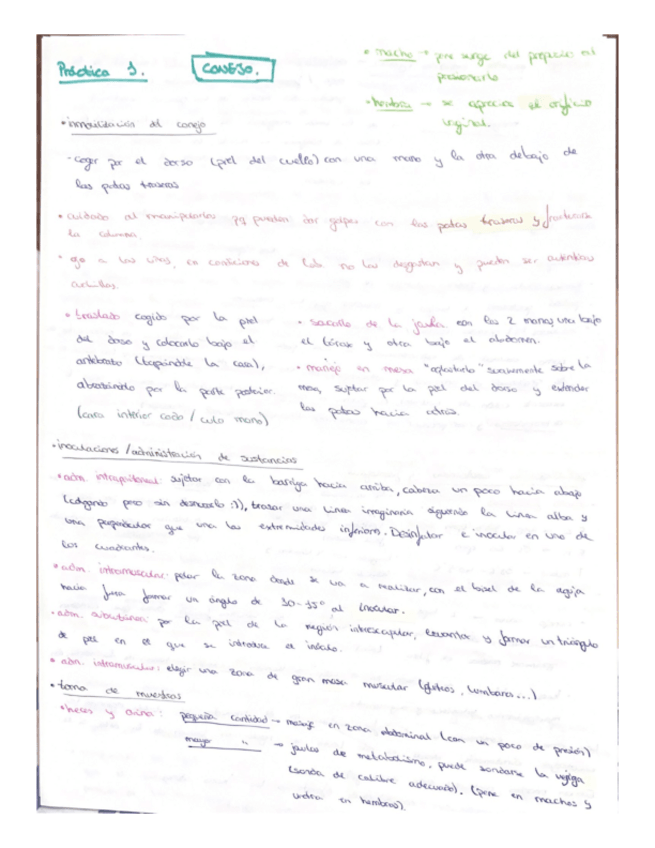 Práctica 1.
CONEJO.
• macho → pene surge del prepucio al
presionarlo
• hembra → se aprecia el orificio
vaginal.
• inmovilización del conejo
- coger por el dorso (piel del cuello) con una mano y la otra debajo de
las patas traseras
• cuidado al manipularlos pq pueden dar golpes con las patas traseras y fracturarse
la columna.
• ojo a las uñas, en condiciones de lab no las desgastan y pueden ser auténticas
cuchillas.
• traslado cogido por la piel
del dorso y colocarlo bajo el
antebrazo (tapándole la cara),
abrazándolo por la parte posterior.
(cara interior codo / culo mano)
• sacarlo de la jaula con las 2 manos, una bajo
el tórax y otra bajo el abdomen.
• manejo en mesa "aplastarlo" suavemente sobre la
mesa, sujetar por la piel del dorso y extender
las patas hacia atrás.
• inoculaciones / administración de sustancias
• adm. intraperitoneal: sujetar con la barriga hacia arriba, cabeza un poco hacia abajo
(colgando pero sin desnucarlo :)), trazar una línea imaginaria siguiendo la línea alba y
una perpendicular que una las extremidades inferiores. Desinfectar e inocular en uno de
los cuadrantes.
• adm. intramuscular: pelar la zona donde se va a realizar, con el bisel de la aguja
hacia fuera formar un ángulo de 30-35º al inocular.
• adm. subcutánea: por la piel de la región interescapular, levantar y formar un triángulo
de piel en el que se introduce el inóculo.
• adm. intramuscular: elegir una zona de gran masa muscular (glúteos, lumbares...)
• toma de muestras
• heces y orina: pequeña cantidad → masaje en zona abdominal (con un poco de presión)
mayor " → jaulas de metabolismo, puede sondarse la vejiga
(sonda de calibre adecuado). (pene en machos y
uretra en hembras).